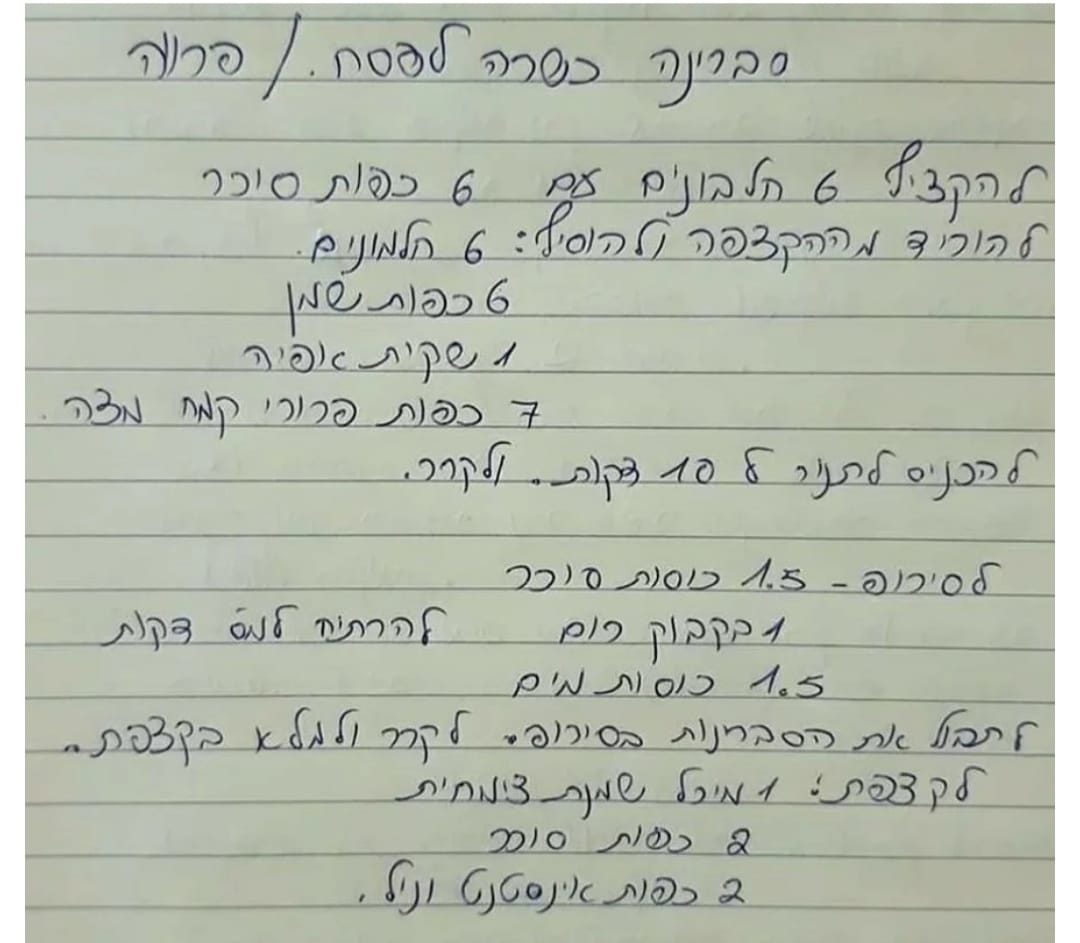 סברינה כשרה לפסח. / פרווה
להקציף 6 חלבונים עם 6 כפות סוכר
להוריד מההקצפה ולהוסיף: 6 חלמונים.
6 כפות שמן
1 שקית אפיה
7 כפות פרורי קמח מצה.
להכניס לתנור ל 10 דקות. ולקרר.
לסירופ - 1.5 כוסות סוכר
1 בקבוק רום להרתיח דקות
1.5 כוסות מים
לטבול את הסברינות בסירופ. לקרר ולמלא בקצפת.
לקצפת: 1 מיכל שמנת צימחית
2 כפות סוכר
2 כפות אינסטנט וניל.